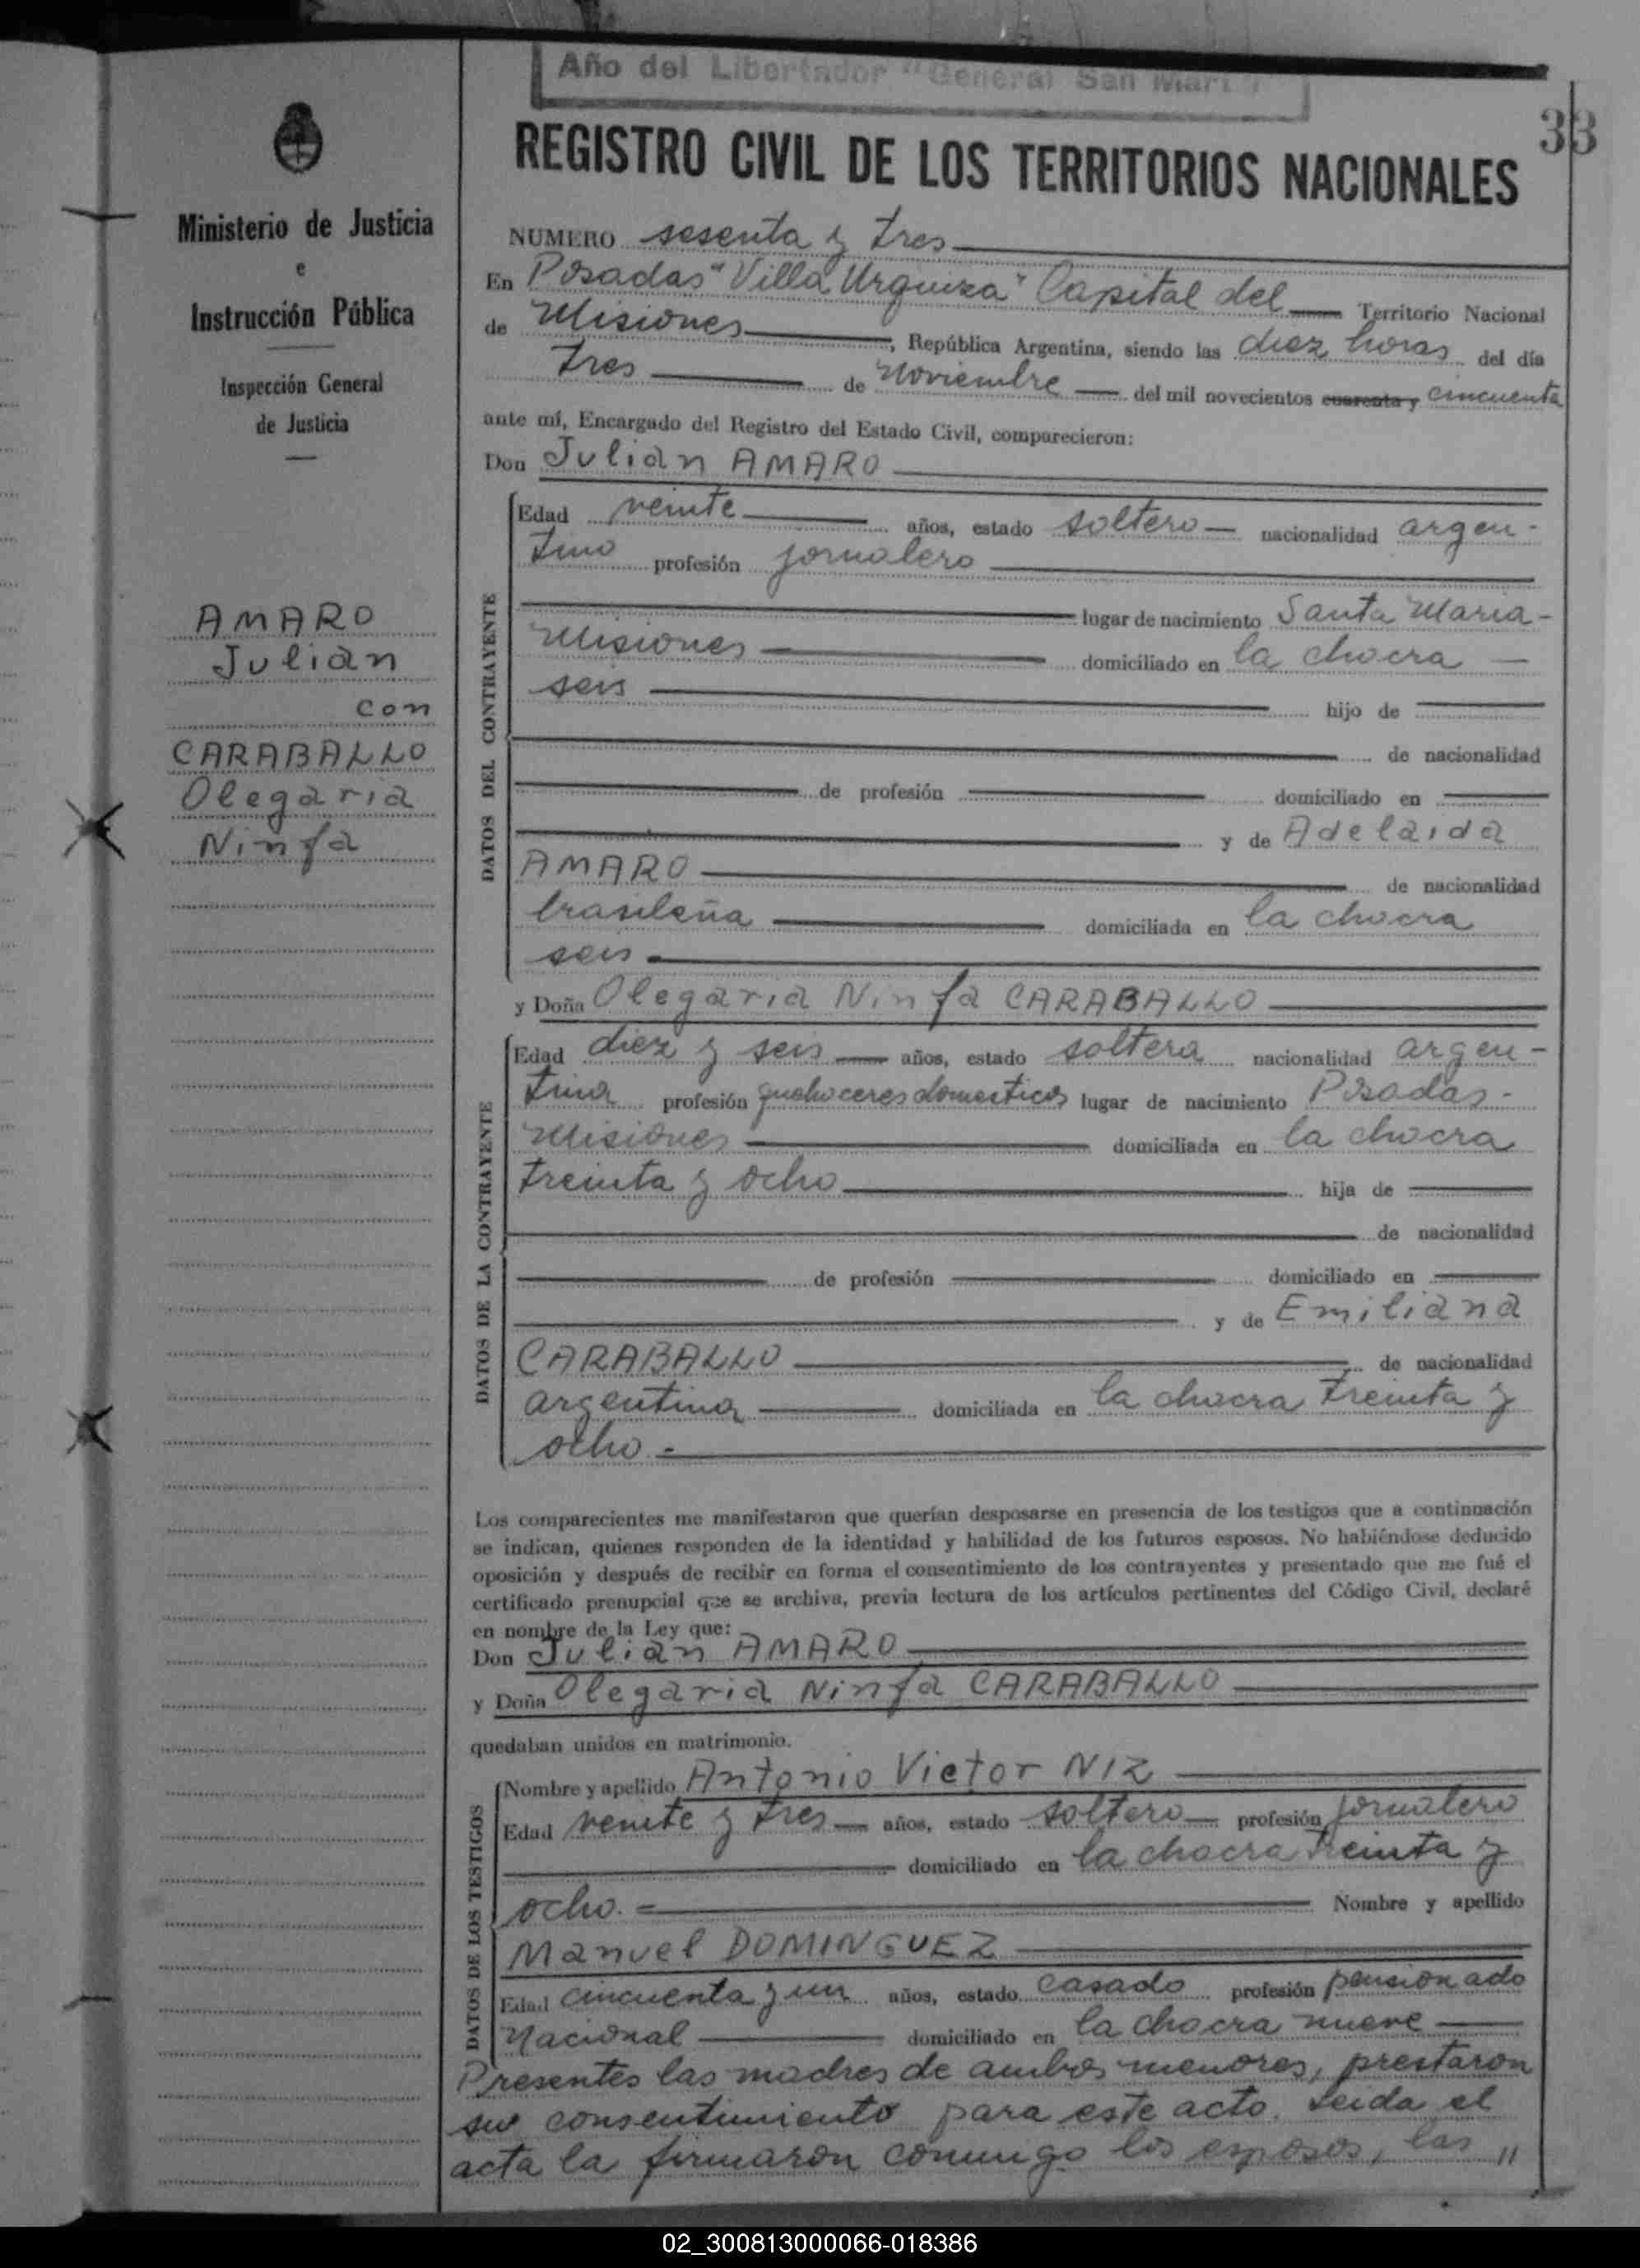 Año del Libertador "General San Mart
33
REGISTRO CIVIL DE LOS TERRITORIOS NACIONALES
Ministerio de Justicia
e
Instrucción Pública
Inspección General
de Justicia
AMARO
Julian
con
CARABALLO
Olegaria
Ninfa
NUMERO sesenta y tres
En Posadas "Villa Urquiza" Capital del Territorio Nacional
de Misiones, República Argentina, siendo las diez horas del día
tres de Noviembre del mil novecientos cuarenta y cincuenta
ante mí, Encargado del Registro del Estado Civil, comparecieron:
Don Julian AMARO
DATOS DEL CONTRAYENTE
Edad veinte años, estado soltero nacionalidad argen-
tino profesión jornalero
lugar de nacimiento Santa Maria-
Misiones domiciliado en la chacra
seis hijo de
de nacionalidad
de profesión domiciliado en
y de Adelaida
AMARO de nacionalidad
brasileña domiciliada en la chacra
seis
y Doña Olegaria Ninfa CARABALLO
DATOS DE LA CONTRAYENTE
Edad diez y seis años, estado soltera nacionalidad argen-
tina profesión quehaceres domesticos lugar de nacimiento Posadas-
Misiones domiciliada en la chacra
treinta y ocho hija de
de nacionalidad
de profesión domiciliado en
y de Emiliana
CARABALLO de nacionalidad
argentina domiciliada en la chacra treinta y
ocho.-
Los comparecientes me manifestaron que querían desposarse en presencia de los testigos que a continuación
se indican, quienes responden de la identidad y habilidad de los futuros esposos. No habiéndose deducido
oposición y después de recibir en forma el consentimiento de los contrayentes y presentado que me fué el
certificado prenupcial que se archiva, previa lectura de los artículos pertinentes del Código Civil, declaré
en nombre de la Ley que:
Don Julian AMARO
y Doña Olegaria Ninfa CARABALLO
quedaban unidos en matrimonio.
DATOS DE LOS TESTIGOS
Nombre y apellido Antonio Victor NIZ
Edad veinte y tres años, estado soltero profesión jornalero
domiciliado en la chacra treinta y
ocho.= Nombre y apellido
Manuel DOMINGUEZ
Edad cincuenta y un años, estado casado profesión pensionado
Nacional domiciliado en la chacra nueve
Presentes las madres de ambos menores, prestaron
su consentimiento para este acto. Leida el
acta la firmaron conmigo los esposos, las "
02_300813000066-018386